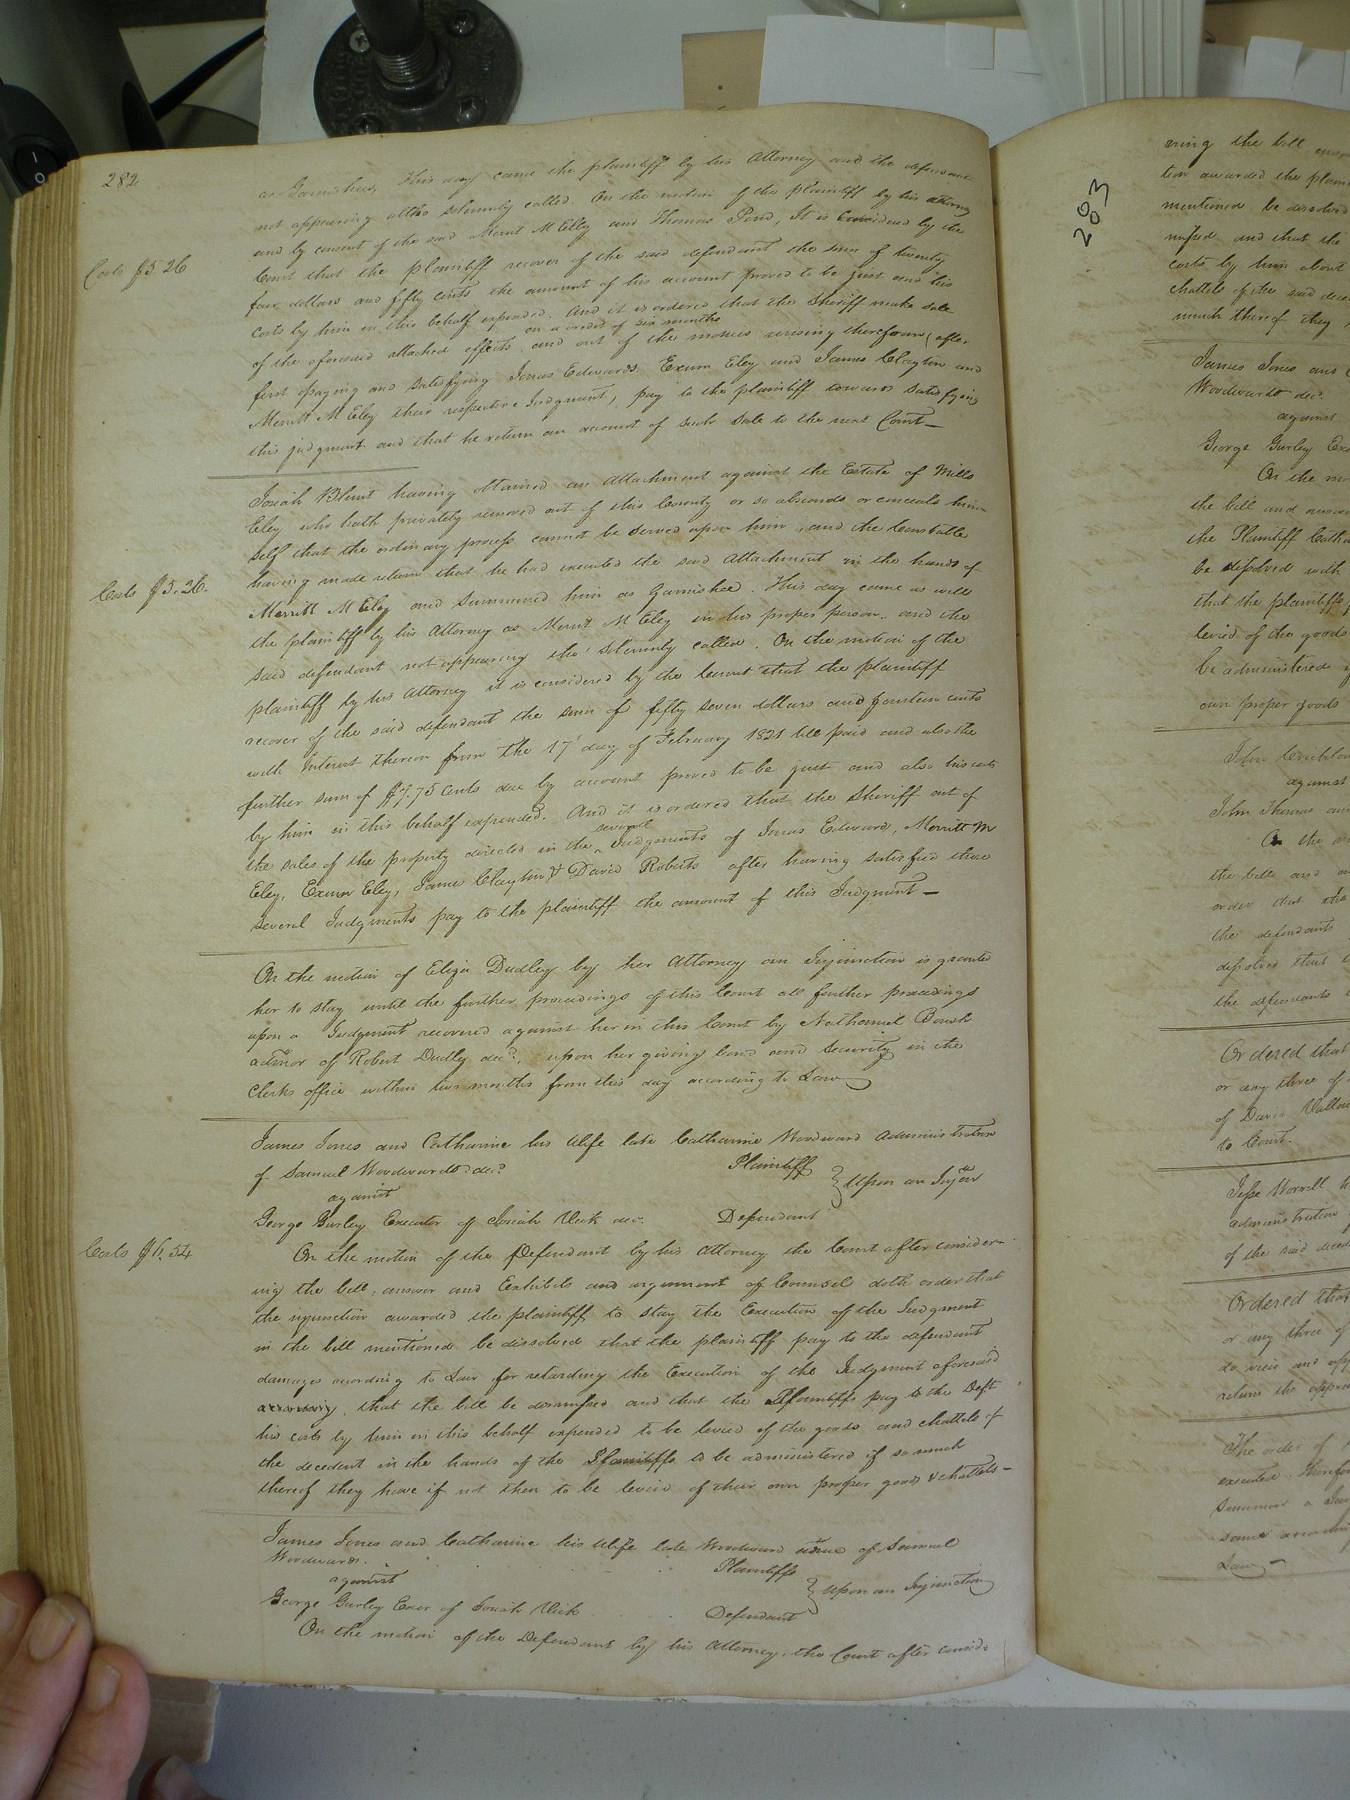 282
as Garnishees, This day came the plaintiff by his Attorney and the defendant
not appearing altho solemnly called. On the motion of the plaintiff by his attorney
and by consent of the said Merrit M Eley and Thomas it is Considered by the
Costs $5 26
Court that the plaintiff recover of the said defendant the sum of twenty
four dollars and fifty cents the amount of his account proved to be just and his
costs by him in this behalf expended. And it is ordered that the Sheriff make sale
on a credit of six months
of the aforesaid attached effects and out of the monies arising therefrom (after
first paying and satisfying Jonas Edwards, Exum Eley and James Clayton and
Merritt M Eley their respective Judgment, pay to the plaintiff towards satisfying
this judgment and that he return an account of such sale to the next Court—
Josiah Blunt having obtained an Attachment against the Estate of Mills
Eley who hath privately removed out of this County or so absconds or conceals him-
self that the ordinary process cannot be served upon him, and the Constable
having made return that he had executed the said Attachment in the hands of
Costs $5.26.
Merritt M Eley and summoned him as Garnishee. This day came as well
the plaintiff by his Attorney as Merrit M Eley in his proper person, and the
said defendant not appearing tho' solemnly called. On the motion of the
plaintiff by his Attorney it is considered by the Court that the plaintiff
recover of the said defendant the sum of fifty seven dollars and fourteen cents
with Interest thereon from the 17 day of February 1821 till paid and also the
further sum of $7.75 cents due by account proved to be just and also his costs
by him in this behalf expended. And it is ordered that the Sheriff out of
the sales of the property directed in the several Judgments of Jonas Edward, Merritt M
Eley, Exum Eley, James Clayton & David Roberts after having satisfied those
several Judgments pay to the plaintiff the amount of this Judgment—
On the motion of Eliza Dudley by her Attorney an Injunction is granted
her to stay until the further proceedings of this Court all further proceedings
upon a Judgment recovered against her in this Court by Nathaniel
admor of Robert Dudley decd. upon her giving bond and security in the
Clerks office within two months from this day according to Law
James Jones and Catharine his Wife late Catharine Woodward Administratrix
of Samuel Woodward decd Plaintiff
against } Upon an Injon
George Gurley Executor of Josiah Vick dec. Defendant
Costs $6.54
On the motion of the Defendant by his Attorney the Court after consider-
ing the bill, answer and Exhibits and argument of Counsel doth order that
the injunction awarded the plaintiff to stay the Execution of the Judgment
in the bill mentioned be dissolved that the plaintiff pay to the defendant
damages according to Law for retarding the Execution of the Judgment aforesaid
that the bill be dismissed and that the Plaintiffs pay to the Deft
his costs by him in this behalf expended to be levied of the goods and chattels of
the decedent in the hands of the Plaintiffs to be administered if so much
thereof they have if not then to be levied of their own proper goods & chattels—
James Jones and Catharine his Wife late Woodward admx of Samuel
Woodward. Plaintiffs
against } Upon an Injunction
George Gurley Exor of Josiah Vick Defendant
On the motion of the Defendant by his Attorney, the Court after consid-
203
ering the bill
tion awarded the plain
mentioned be dissolved
missed and that the
costs by him about
chattels of the said dece
much thereof they
James Jones and C
Woodward decd.
against
George Gurley Exe
On the mo
the bill and answer
the Plaintiff Catha
be dissolved with
that the plaintiffs
levied of the goods
be administered if
own proper goods
John
against
John Thomas
On the
the bill and
order that the
the defendants
dissolved that
the defendants
Ordered that
or any three of
of David
to Court.
Jesse Worrell
administration
of the said deced
Ordered that
or any three of
return the
The order of
executed. Therefor
summon a
same
Law—